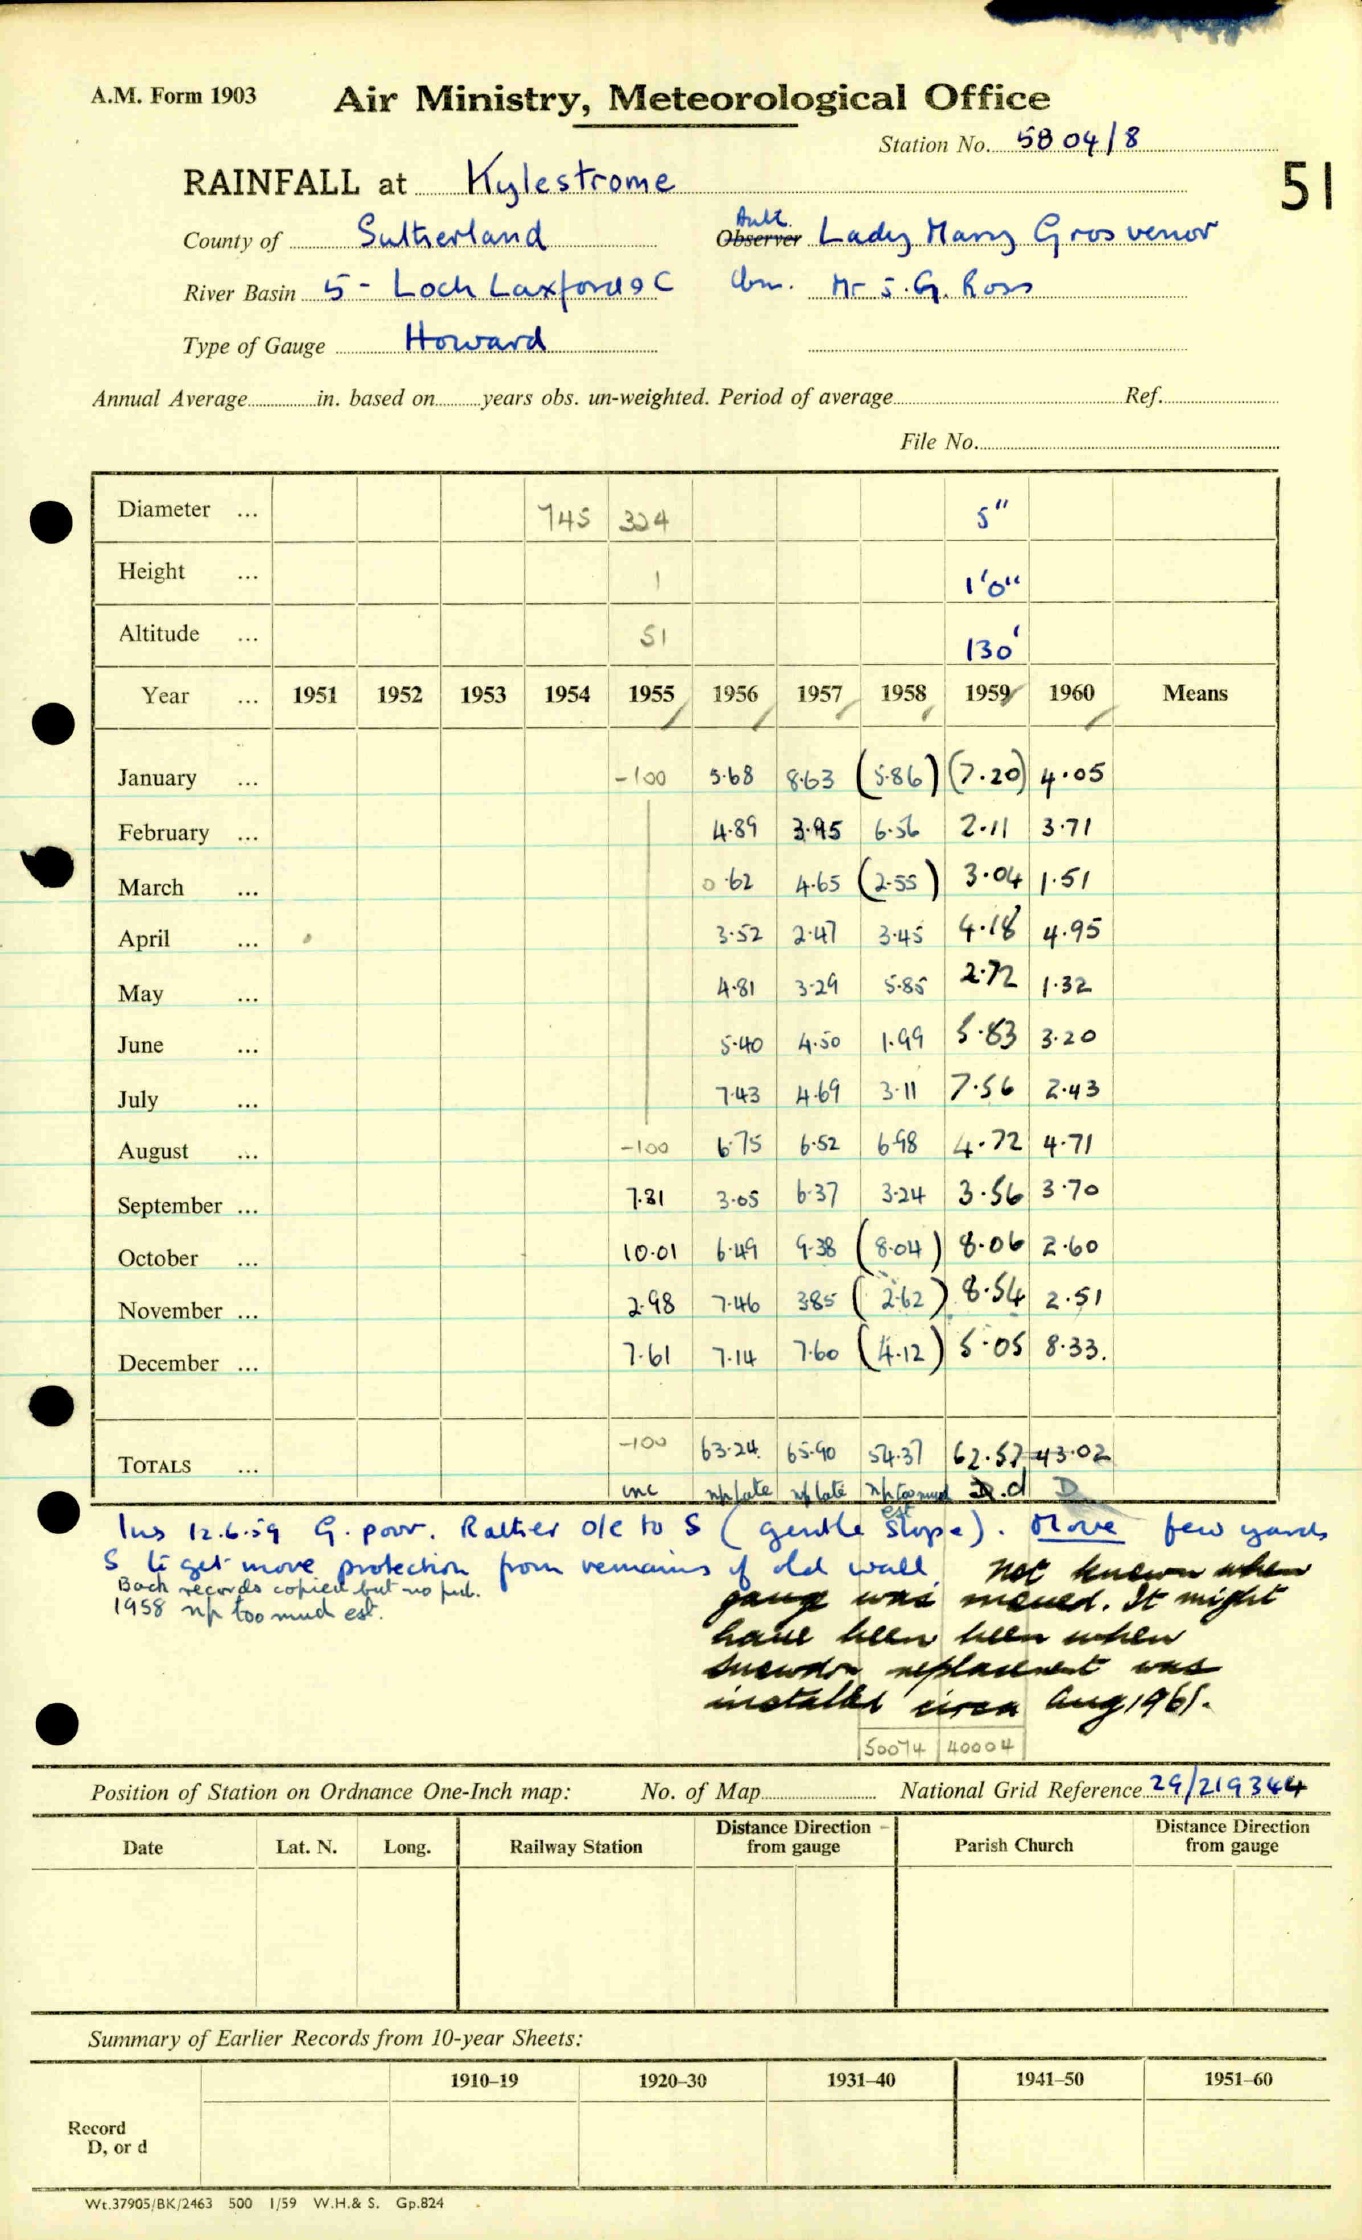 A.M. Form 1903 Air Ministry, Meteorological Office
Station No. 5804/8
RAINFALL at Kylestrome 51
County of Sutherland Observer Auth. Lady Mary Grosvenor
River Basin 5 - Loch Laxford &C Obsr. Mr J. G. Ross
Type of Gauge Howard
Annual Average in. based on years obs. un-weighted. Period of average Ref.
File No.
Diameter ... 745 324 5"
Height ... 1 1'0"
Altitude ... 51 130'
Year ... 1951 1952 1953 1954 1955 1956 1957 1958 1959 1960 Means
January ... -100 5.68 8.63 (5.86) (7.20) 4.05
February ... 4.89 3.95 6.56 2.11 3.71
March ... 0.62 4.65 (2.55) 3.04 1.51
April ... 3.52 2.47 3.45 4.18 4.95
May ... 4.81 3.29 5.85 2.72 1.32
June ... 5.40 4.50 1.99 5.83 3.20
July ... 7.43 4.69 3.11 7.56 2.43
August ... -100 6.75 6.52 6.98 4.72 4.71
September ... 7.81 3.05 6.37 3.24 3.56 3.70
October ... 10.01 6.49 9.38 (8.04) 8.06 2.60
November ... 2.98 7.46 3.85 (2.62) 8.54 2.51
December ... 7.61 7.14 7.60 (4.12) 5.05 8.33.
TOTALS ... -100 63.24 65.90 54.37 62.57 43.02
inc np late np late np too much est d D
Ins 12.6.59 G. poor. Rather o/e to S (gentle slope). Move few yards
S to get more protection from remains of old wall.
Back records copied but no pub.
1958 np too much est.
Not known when
gauge was moved. It might
have been been when
snowdon replacement was
installed circa Aug 1961.
50074 40004
Position of Station on Ordnance One-Inch map: No. of Map National Grid Reference 29/219344
Date Lat. N. Long. Railway Station Distance Direction from gauge Parish Church Distance Direction from gauge
Summary of Earlier Records from 10-year Sheets:
1910–19 1920–30 1931–40 1941–50 1951–60
Record
D, or d
Wt.37905/BK/2463 500 1/59 W.H.& S. Gp.824